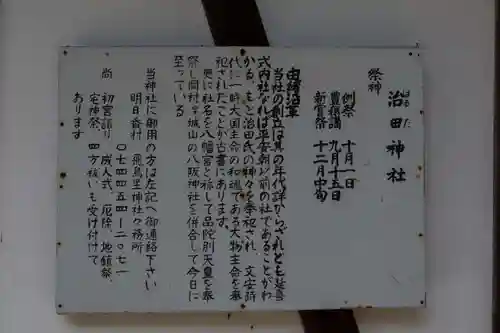 治田神社
はる た
祭神
例祭 十月一日
豊穣講 九月十五日
新嘗祭 十二月中旬
由緒沿革
当社の創立は其の年代詳からざれども延喜
式内社なれば平安朝以前の社であることがわ
かる。もと治田氏の神々を奉祀され、文安時
代に一時大国主命の和魂である大物主命を奉
祀されたことが古書にあります。
更に社名を八幡宮と称して品陀別天皇を奉
祭し同村字城山の八阪神社を併合して今日に
至っている
当神社に御用の方は左記へ御連絡下さい
明日香村 飛鳥坐神社々務所
〇七四四五四ー二〇七一
尚 初宮詣り、成人式、厄除、地鎮祭、
宅神祭、四方祓いも受け付けて
あります